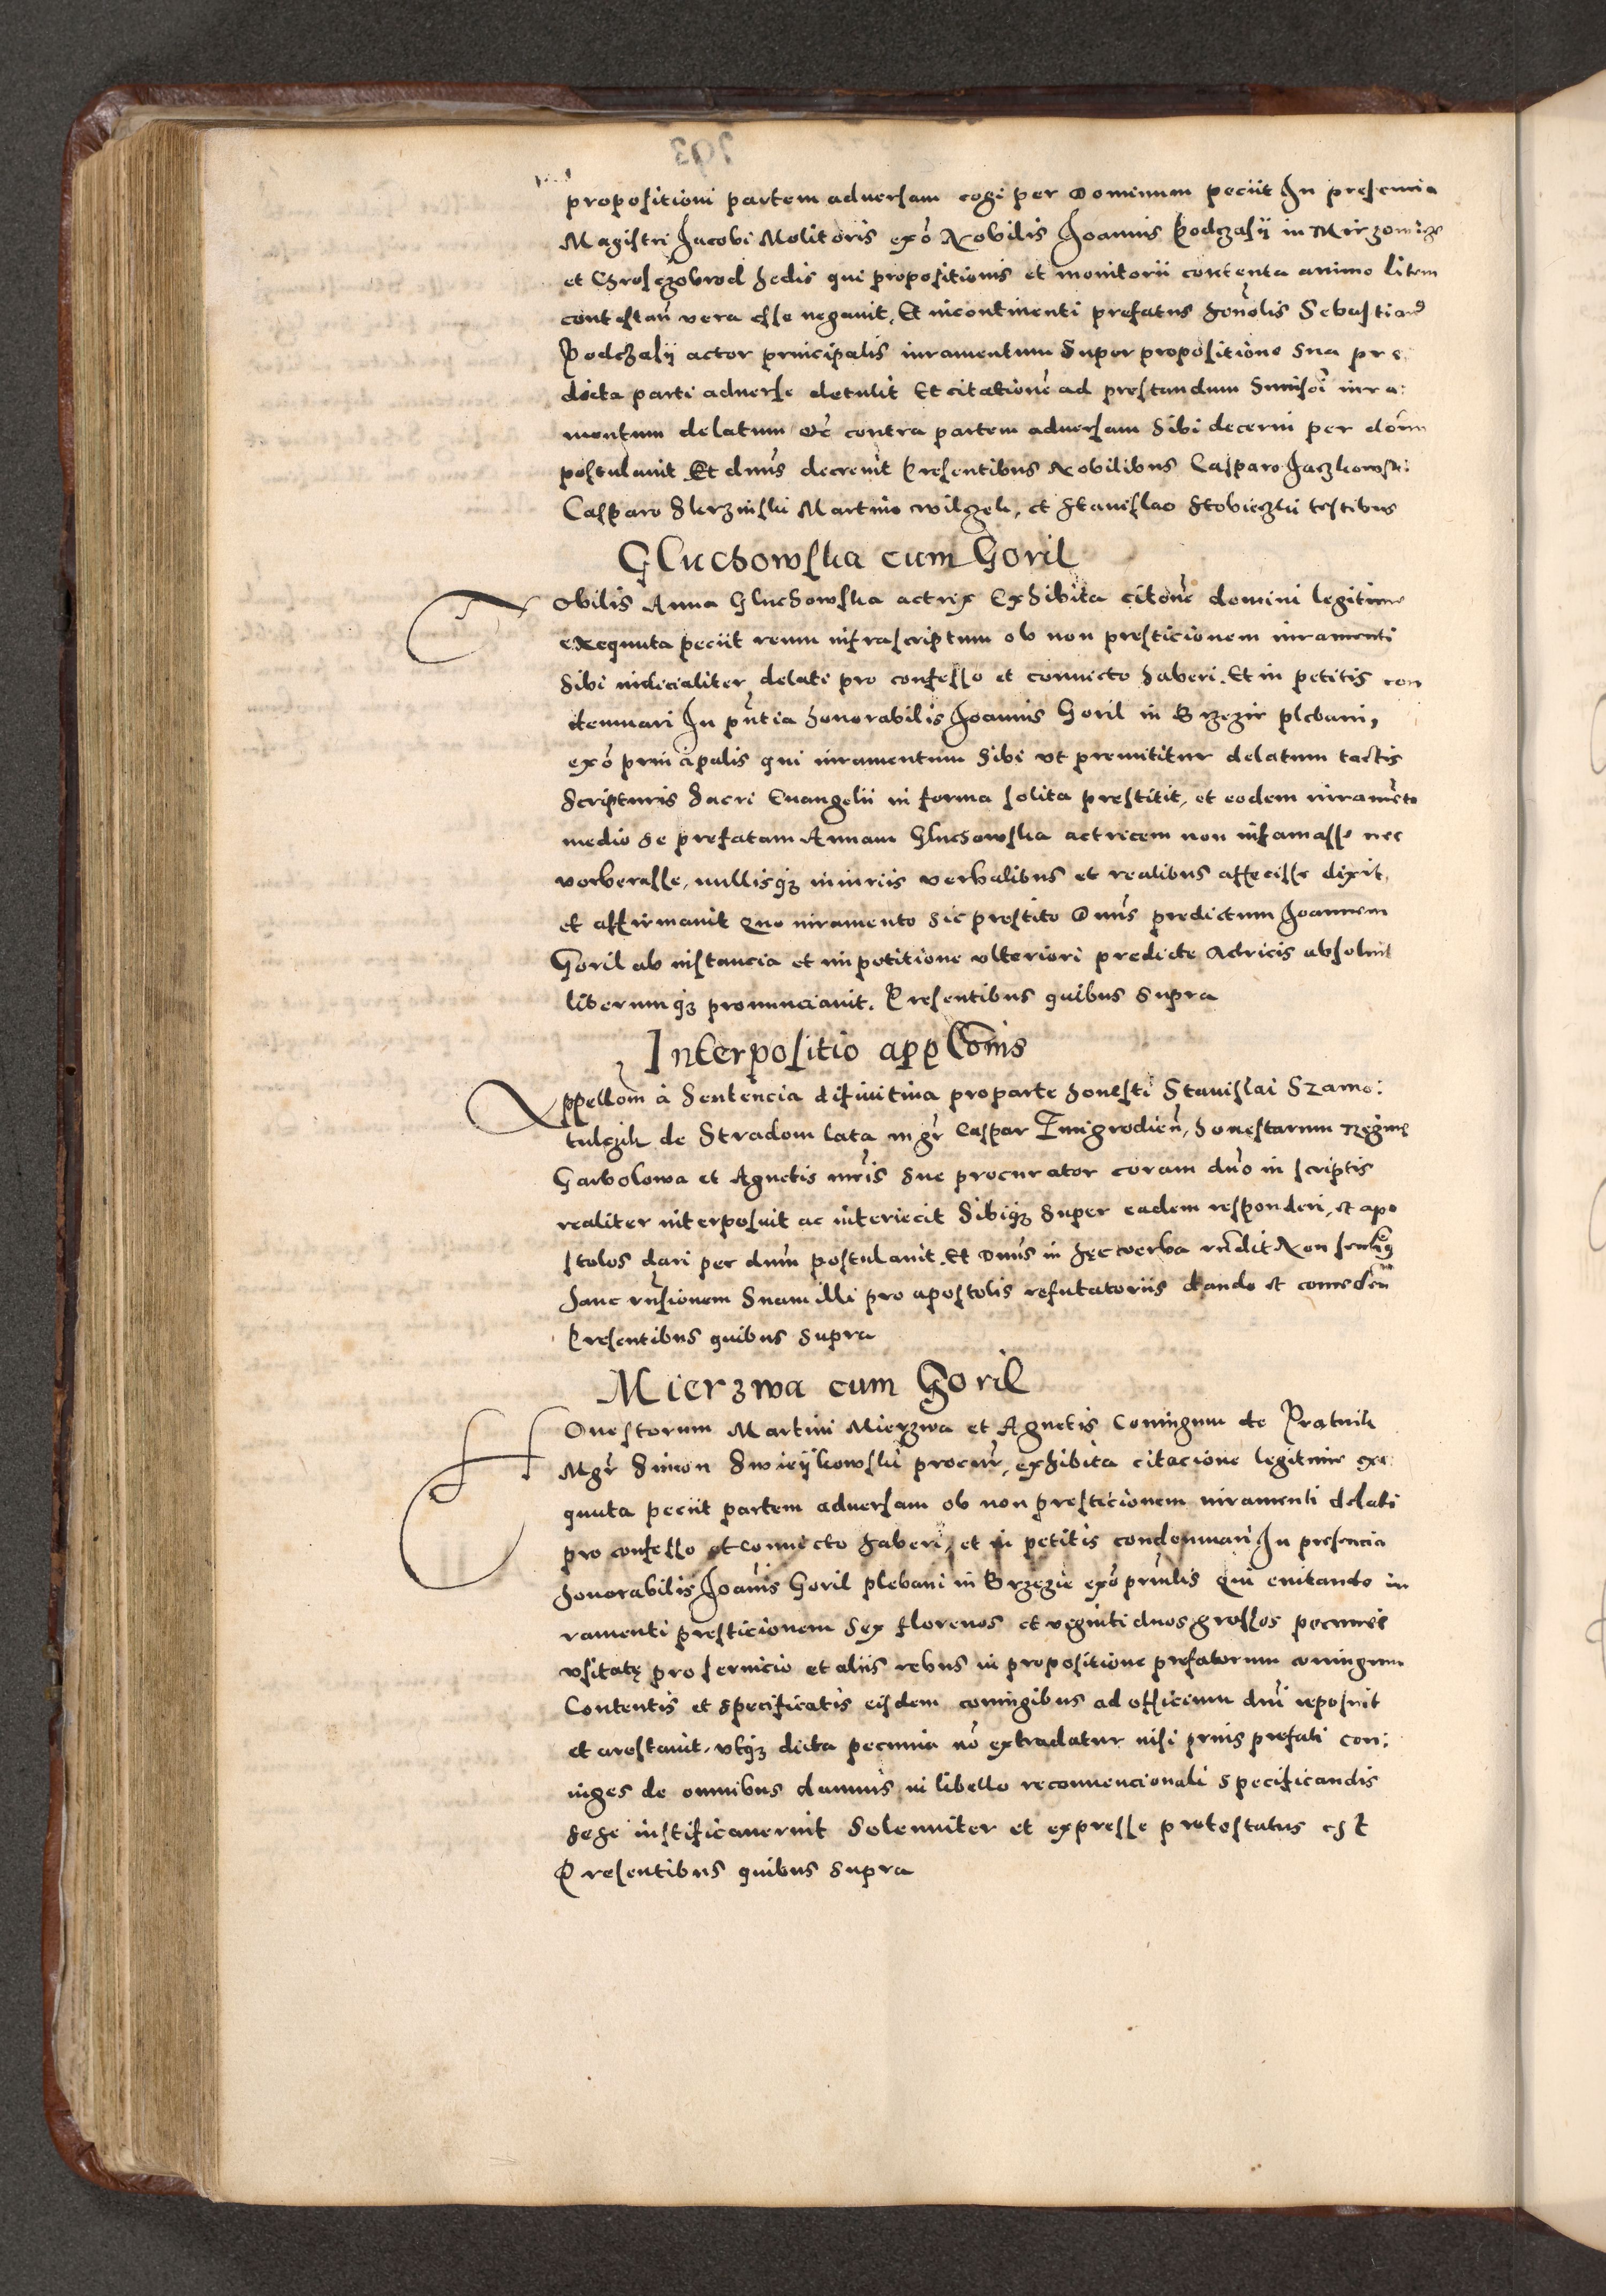 propositioni partem aduersam cogi per Dominum peciit In presencia
Magistri Jacobi Molitoris exõ Nobilis Joannis Podczasÿ in Mirzowicze
et Chrosczobrod hedis qui propositionis et monitorii contenta animo litem
contestan̄ vera esse negauit, Et incontinenti prefatus honolis Sebastian9
Podczasÿ actor principalis iuramentum super propositione sua pre
dicta parti aduerse detulit Et citationē ad prestandum iura:
mentum delatum etc̄ contra partem aduersam sibi decerni per dom̄
postulauit Et dnūs decreuit Presentibus Nobilibus Casparo Jaczkowski
Casparo Skrzinski Martino Wilczek, et Stanislao Stobieczki testibus
Gluchowska cum Goril
Nobilis Anna Gluchowska actrix Exhibita citonē domini legitime
exequuta peciit reum infrascriptum ob non presticionem iuramenti
sibi iudicialiter delati pro confesso et conuicto haberi. Et in petitis con
demnari In pn̄tia honorabilis Joannis Goril in Brzezie plebani,
exõ principalis qui iuramentum sibi vt premittitur delatum tactis
scripturis sacri Euangelii in forma solita prestitit, et eodem iuramēto
medio se prefatam Annam Gluchowska actricem non infamasse nec
verberasse, nullisqȝ iniuriis verbalibus et realibus affecisse dixit,
et affirmauit Quo iuramento sic prestito Dnūs predictum Joannem
Goril ab instancia et impetitione vlteriori predicte Actricis absoluit
liberumqȝ pronunciauit. Presentibus quibus supra
Interpositio appllonis
Appellom̄ à sentencia difinitiua pro parte honesti Stanislai Szamo:
tulczik de Stradom lata mgr̄ Caspar Zmigrodien̄, honestarum Regine
Garbolowa et Agnetis mr̄is sue procurator coram dnō in scriptis
realiter interposuit ac interiecit sibiqȝ super eadem responderi, et apo
stolos dari per dnūm postulauit. Et Dnūs in hęc verba rn̄dit Non
hanc rn̄sionem suam illi pro apostolis refutatoriis dando et conceden̄
Presentibus quibus supra
Mierzwa cum Goril
HOnestorum Martini Mierzwa et Agnetis Coniugum de Pratnik
Mgr̄ Simon Swieÿkowski procur̄, exhibita citacione legitime exe:
quuta peciit partem aduersam ob non presticionem iuramenti delati
pro confesso et conuicto haberi, et in petitis condemnari In presencia
honorabilis Joan̄is Goril plebani in Brzezie exõ prin̄lis Qui euitando iu
ramenti presticionem sex florenos et viginti duos grossos pecunie
vsitatę pro seruicio et aliis rebus in propositione prefatorum coniugum
Contentis et specificatis eisdem coniugibus ad officium dnī reposuit
et arestauit, vtqȝ dicta pecunia nō extradatur nisi prius prefati con:
iuges de omnibus damnis in libello reconuencionali specificandis
sese iustificauerint Solenniter et expresse protestatus est
Presentibus quibus supra